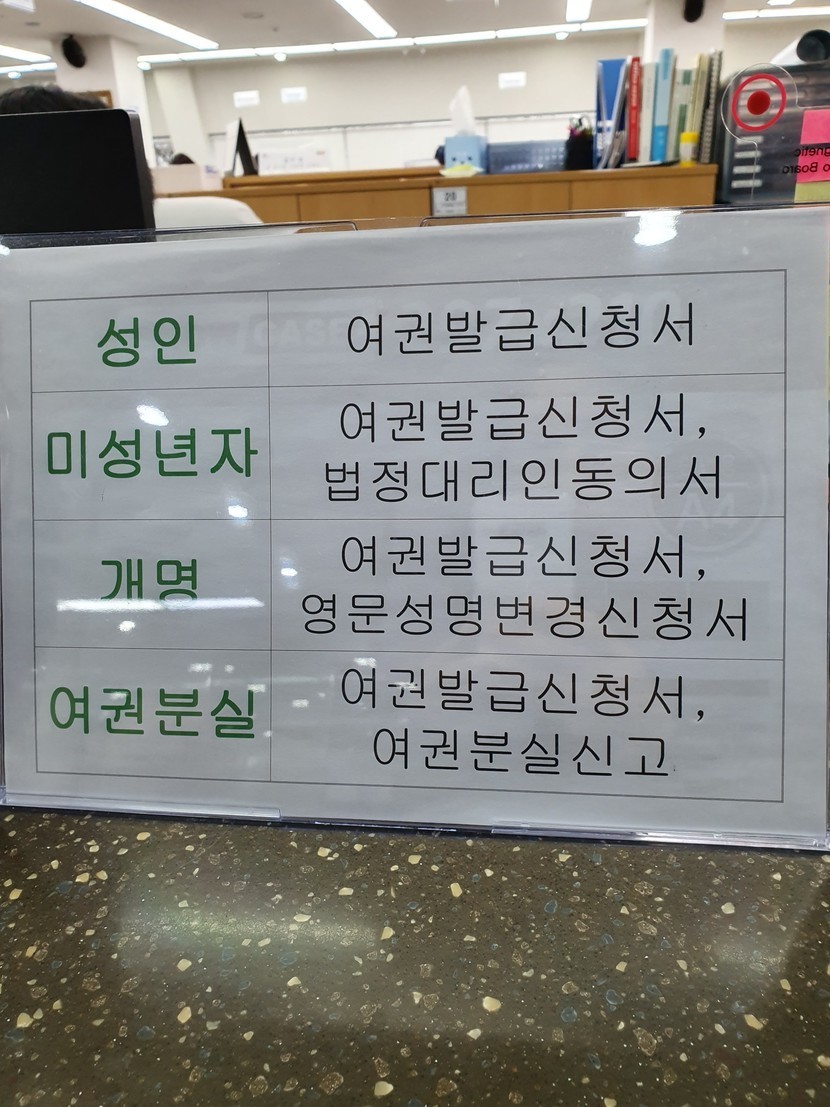 성인
여권발급신청서
미성년자
여권발급신청서,
법정대리인동의서
개명
여권발급신청서,
영문성명변경신청서
여권분실
여권발급신청서,
여권분실신고